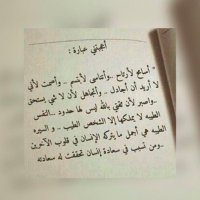 أعجبتني عبارة :
" أسامح لأرتاح ..وأتناسى لأبتسم ..وأصمت لأني
لا أريد أن أجادل ..وأتجاهل لأن لا شي يستحق
..وأصبر لأن ثقتي بالله ليس لها حدود ...النفس
الطيبه لا يمتلكها إلا الشخص الطيب .. و السيره
الطيبة هي أجمل ما يتركه الإنسان في قلوب الآخرين
..ومن تسبب في سعادة إنسان تحققت له سعادته